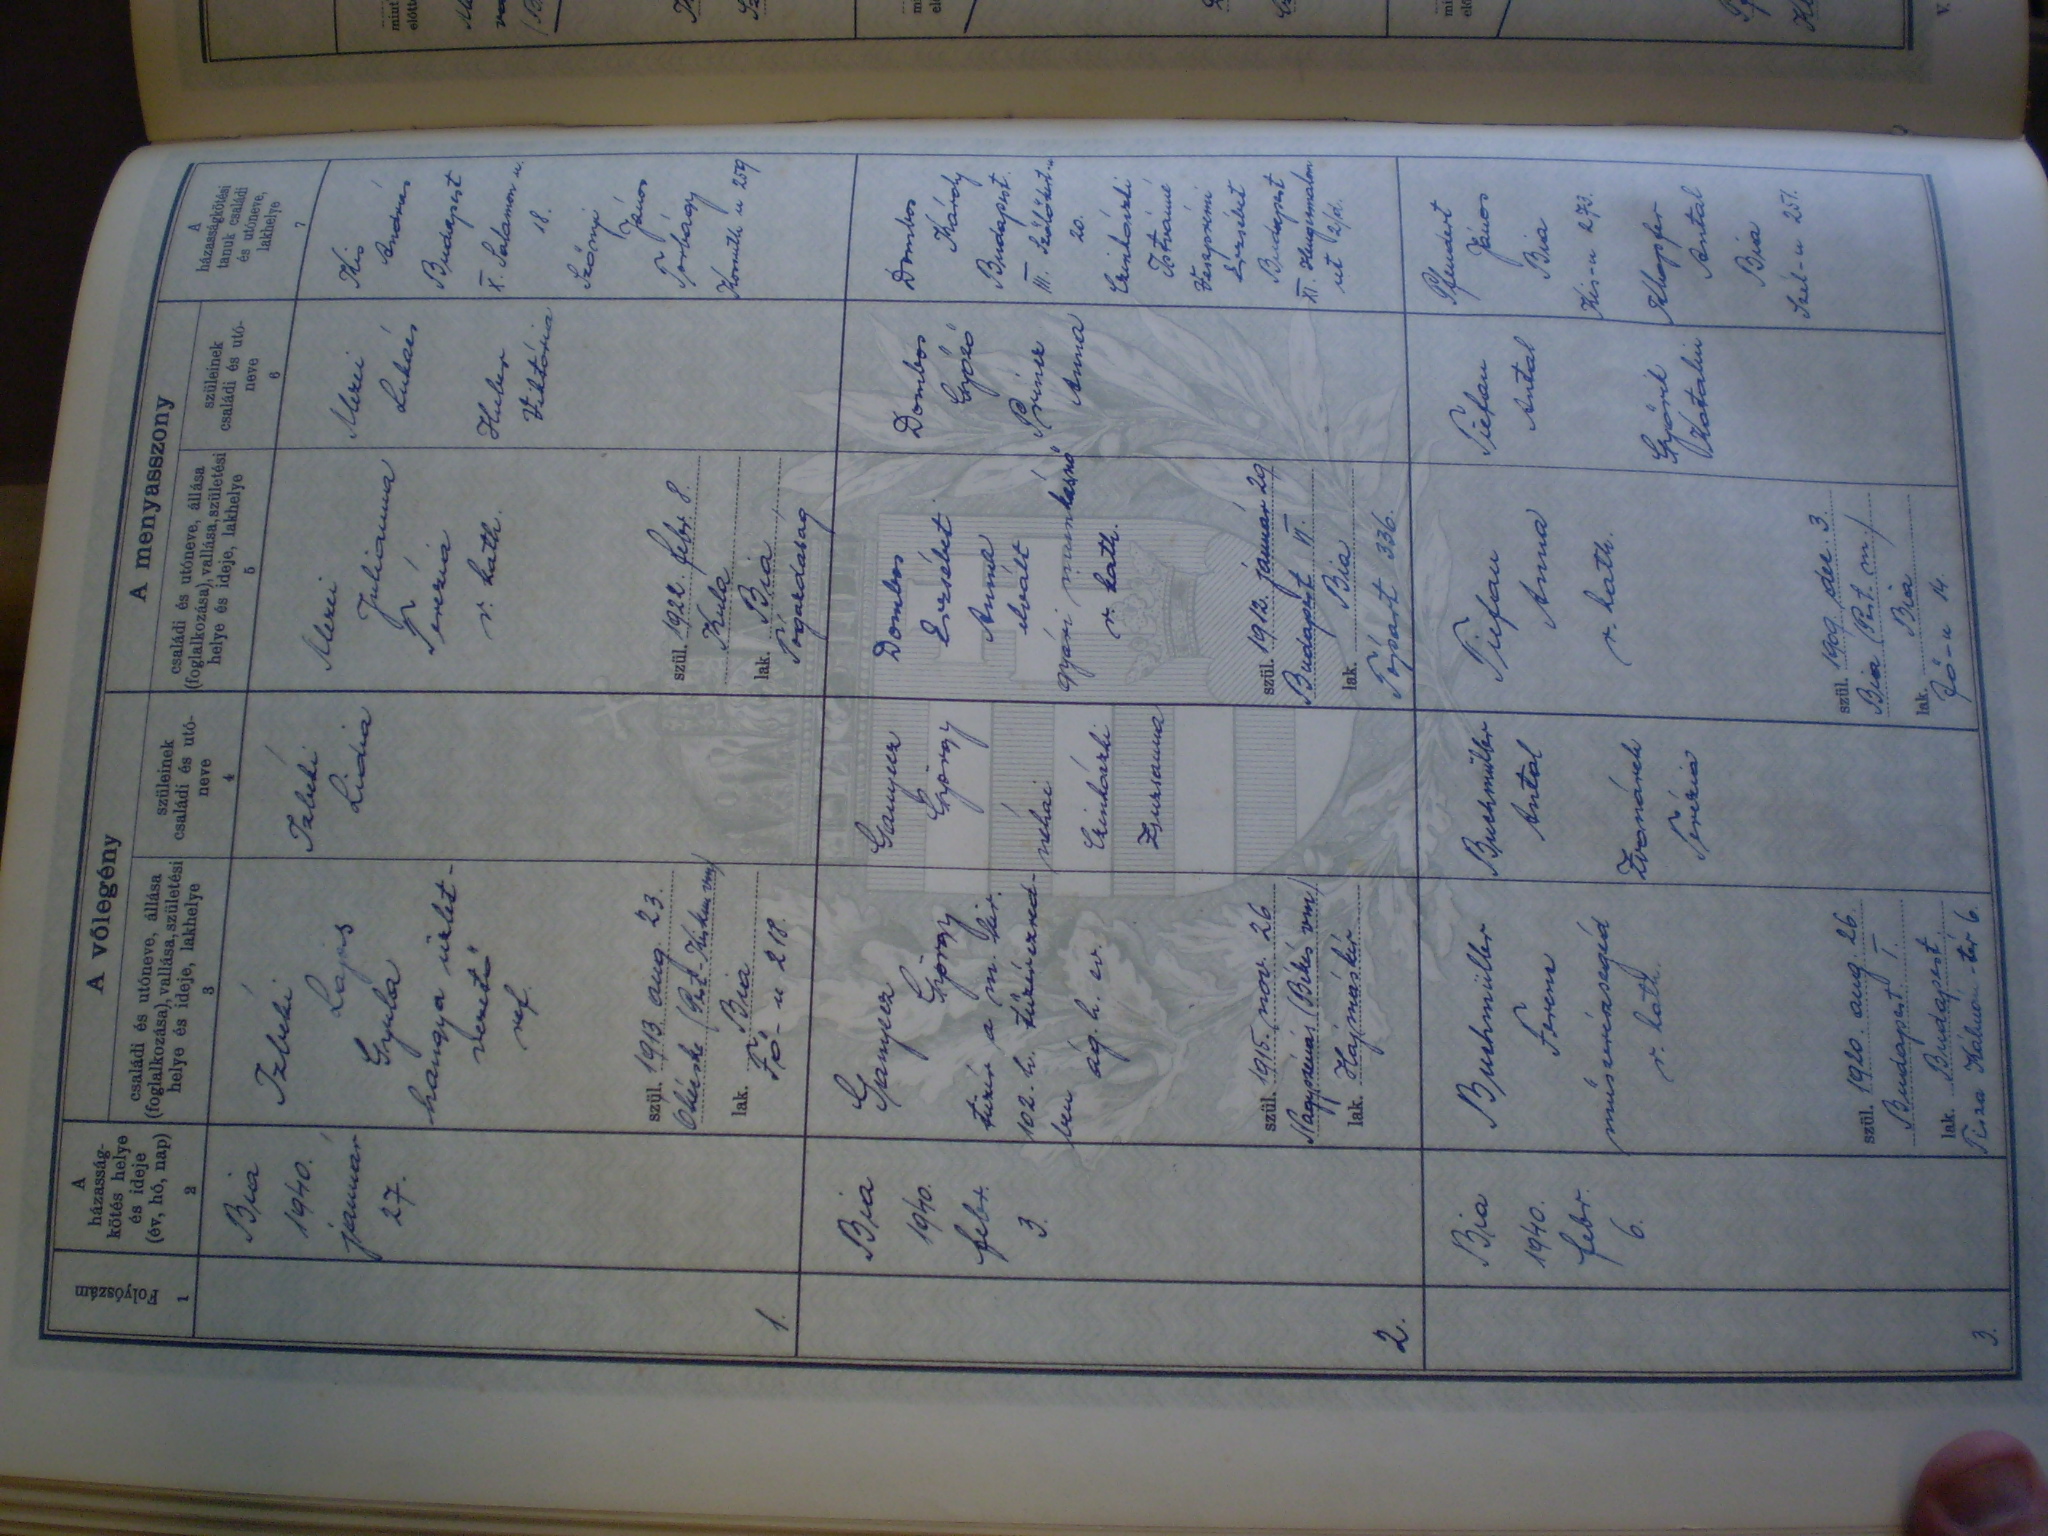 Folyószám
1
A
házasság-
kötés helye
és ideje
(év, hó, nap)
2
A vőlegény
családi és utóneve, állása
(foglalkozása), vallása, születési
helye és ideje, lakhelye
3
szüleinek
családi és utó-
neve
4
A menyasszony
családi és utóneve, állása
(foglalkozása), vallása, születési
helye és ideje, lakhelye
5
szüleinek
családi és utó-
neve
6
A
házasságkötési
tanuk családi
és utóneve,
lakhelye
7
1.
Bia
1940.
január
27.
Izbéki
Lajos
Gyula
hangya üzlet-
vezető
ref.
szül. 1913. aug. 23.
lak. Bia
Fő-u 218.
Izbéki
Lidia
Merei
Julianna
Terézia
r. kath.
szül. 1922. febr. 8.
Kula
lak. Bia
Merei
Lukács
Huber
Viktória
Kis
András
Budapest
X. Salamon u.
18.
Szőnyi
János
Torbágy
Kossuth u 259
2.
Bia
1940.
febr.
3.
Ganyecz
György
tüzér a m. kir.
102. h. tüzérezred-
ben ág. h. ev.
szül. 1915. nov. 26
Nagyszénás (Békés vm)
lak. Hajmáskér
Ganyecz
György
néhai
Czinkóczki
Zsuzsanna
Dombos
Erzsébet
Anna
elvált
gyári munkásnő
r. kath.
szül. 1912. január 29
Budapest VI.
lak. Bia
Tópart 336.
Dombos
Győző
Prinez
Anna
Dombos
Károly
Budapest
III. Szőlőkert-u
20.
Czinkóczki
Istvánné
Veszprémi
Erzsébet
Budapest
XI. Hengermalom
út 2/a.
3.
Bia
1940.
febr.
6.
Buchmüller
Ferenc
műszerészsegéd
r. kath.
szül. 1920. aug. 26.
Budapest I.
lak. Budapest
Tisza Kálmán-tér 6.
Buchmüller
Antal
Zvonárek
Terézia
Tiefau
Anna
r. kath.
szül. 1909 dec. 3.
Bia (Pest. m.)
lak. Bia
Fő-u 14.
Tiefau
Antal
Győrik
Katalin
Pfendert
János
Bia
Kis-u 273.
Antal
Bia
Szél-u 251.
V.